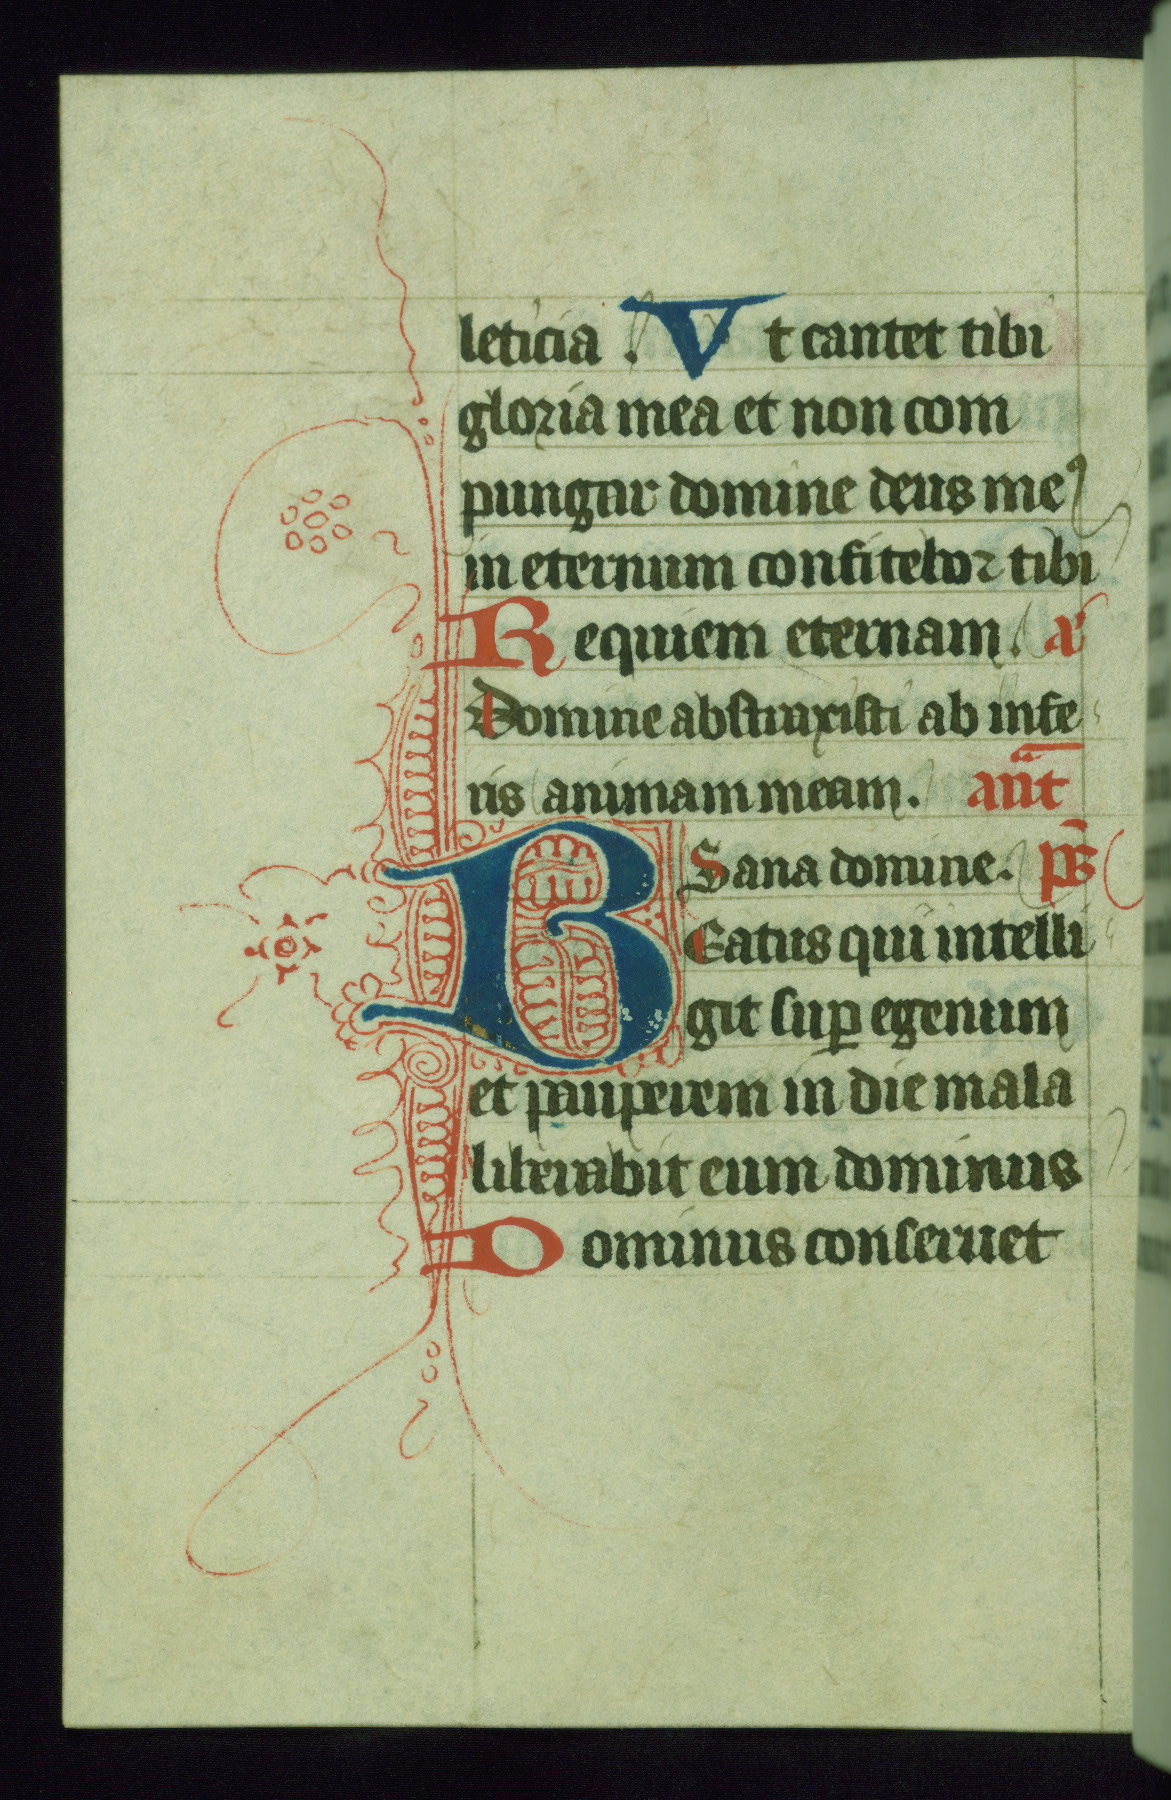 leticia . Vt cantet tibi
gloria mea et non com
pungar domine deus meꝰ
in eternum confitebor tibi
Requiem eternam. añ
Domine abstraxisti ab infe
ris animam meam. ant̄
Sana domine. ps̄
BEatus qui intelli
git suꝑ egenum
et pauperem in die mala
liberabit eum dominus
Dominus conseruet